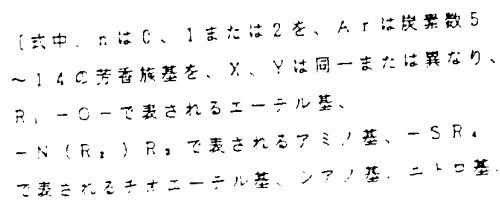 (式中、nは0、1または2を、Arは炭素数5
～14の芳香族基を、X、Yは同一または異なり、
R₁－O－で表されるエーテル基、
－N(R₂)R₃で表されるアミノ基、－SR₄
で表されるチオエーテル基、シアノ基、ニトロ基、